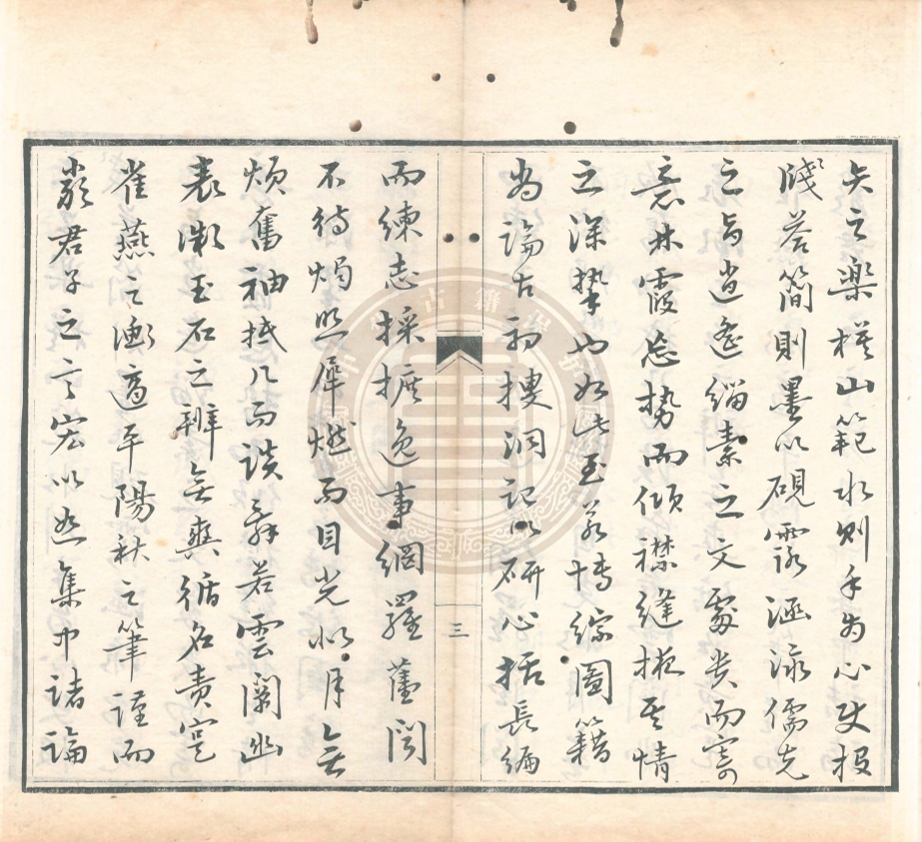 矢之樂模山範水則手為心使投
牋答簡則墨以硯靈涵泳儒先
之旨逍遙緇素之文處貴而寄
意林霞忘势而傾襟縫掖其情
之深摯也如此至若博綜圖籍
尚論古初搜洞記以研心括長編
三
而練志採摭逸事網羅舊聞
不待燭照犀燃而目光如月無
煩奮袖抵几而談辭若雲闡幽
表微玉石之辨無爽循名責實
雀燕之衡適平陽秋之筆謹而
嚴君子之言宏以 集中諸論